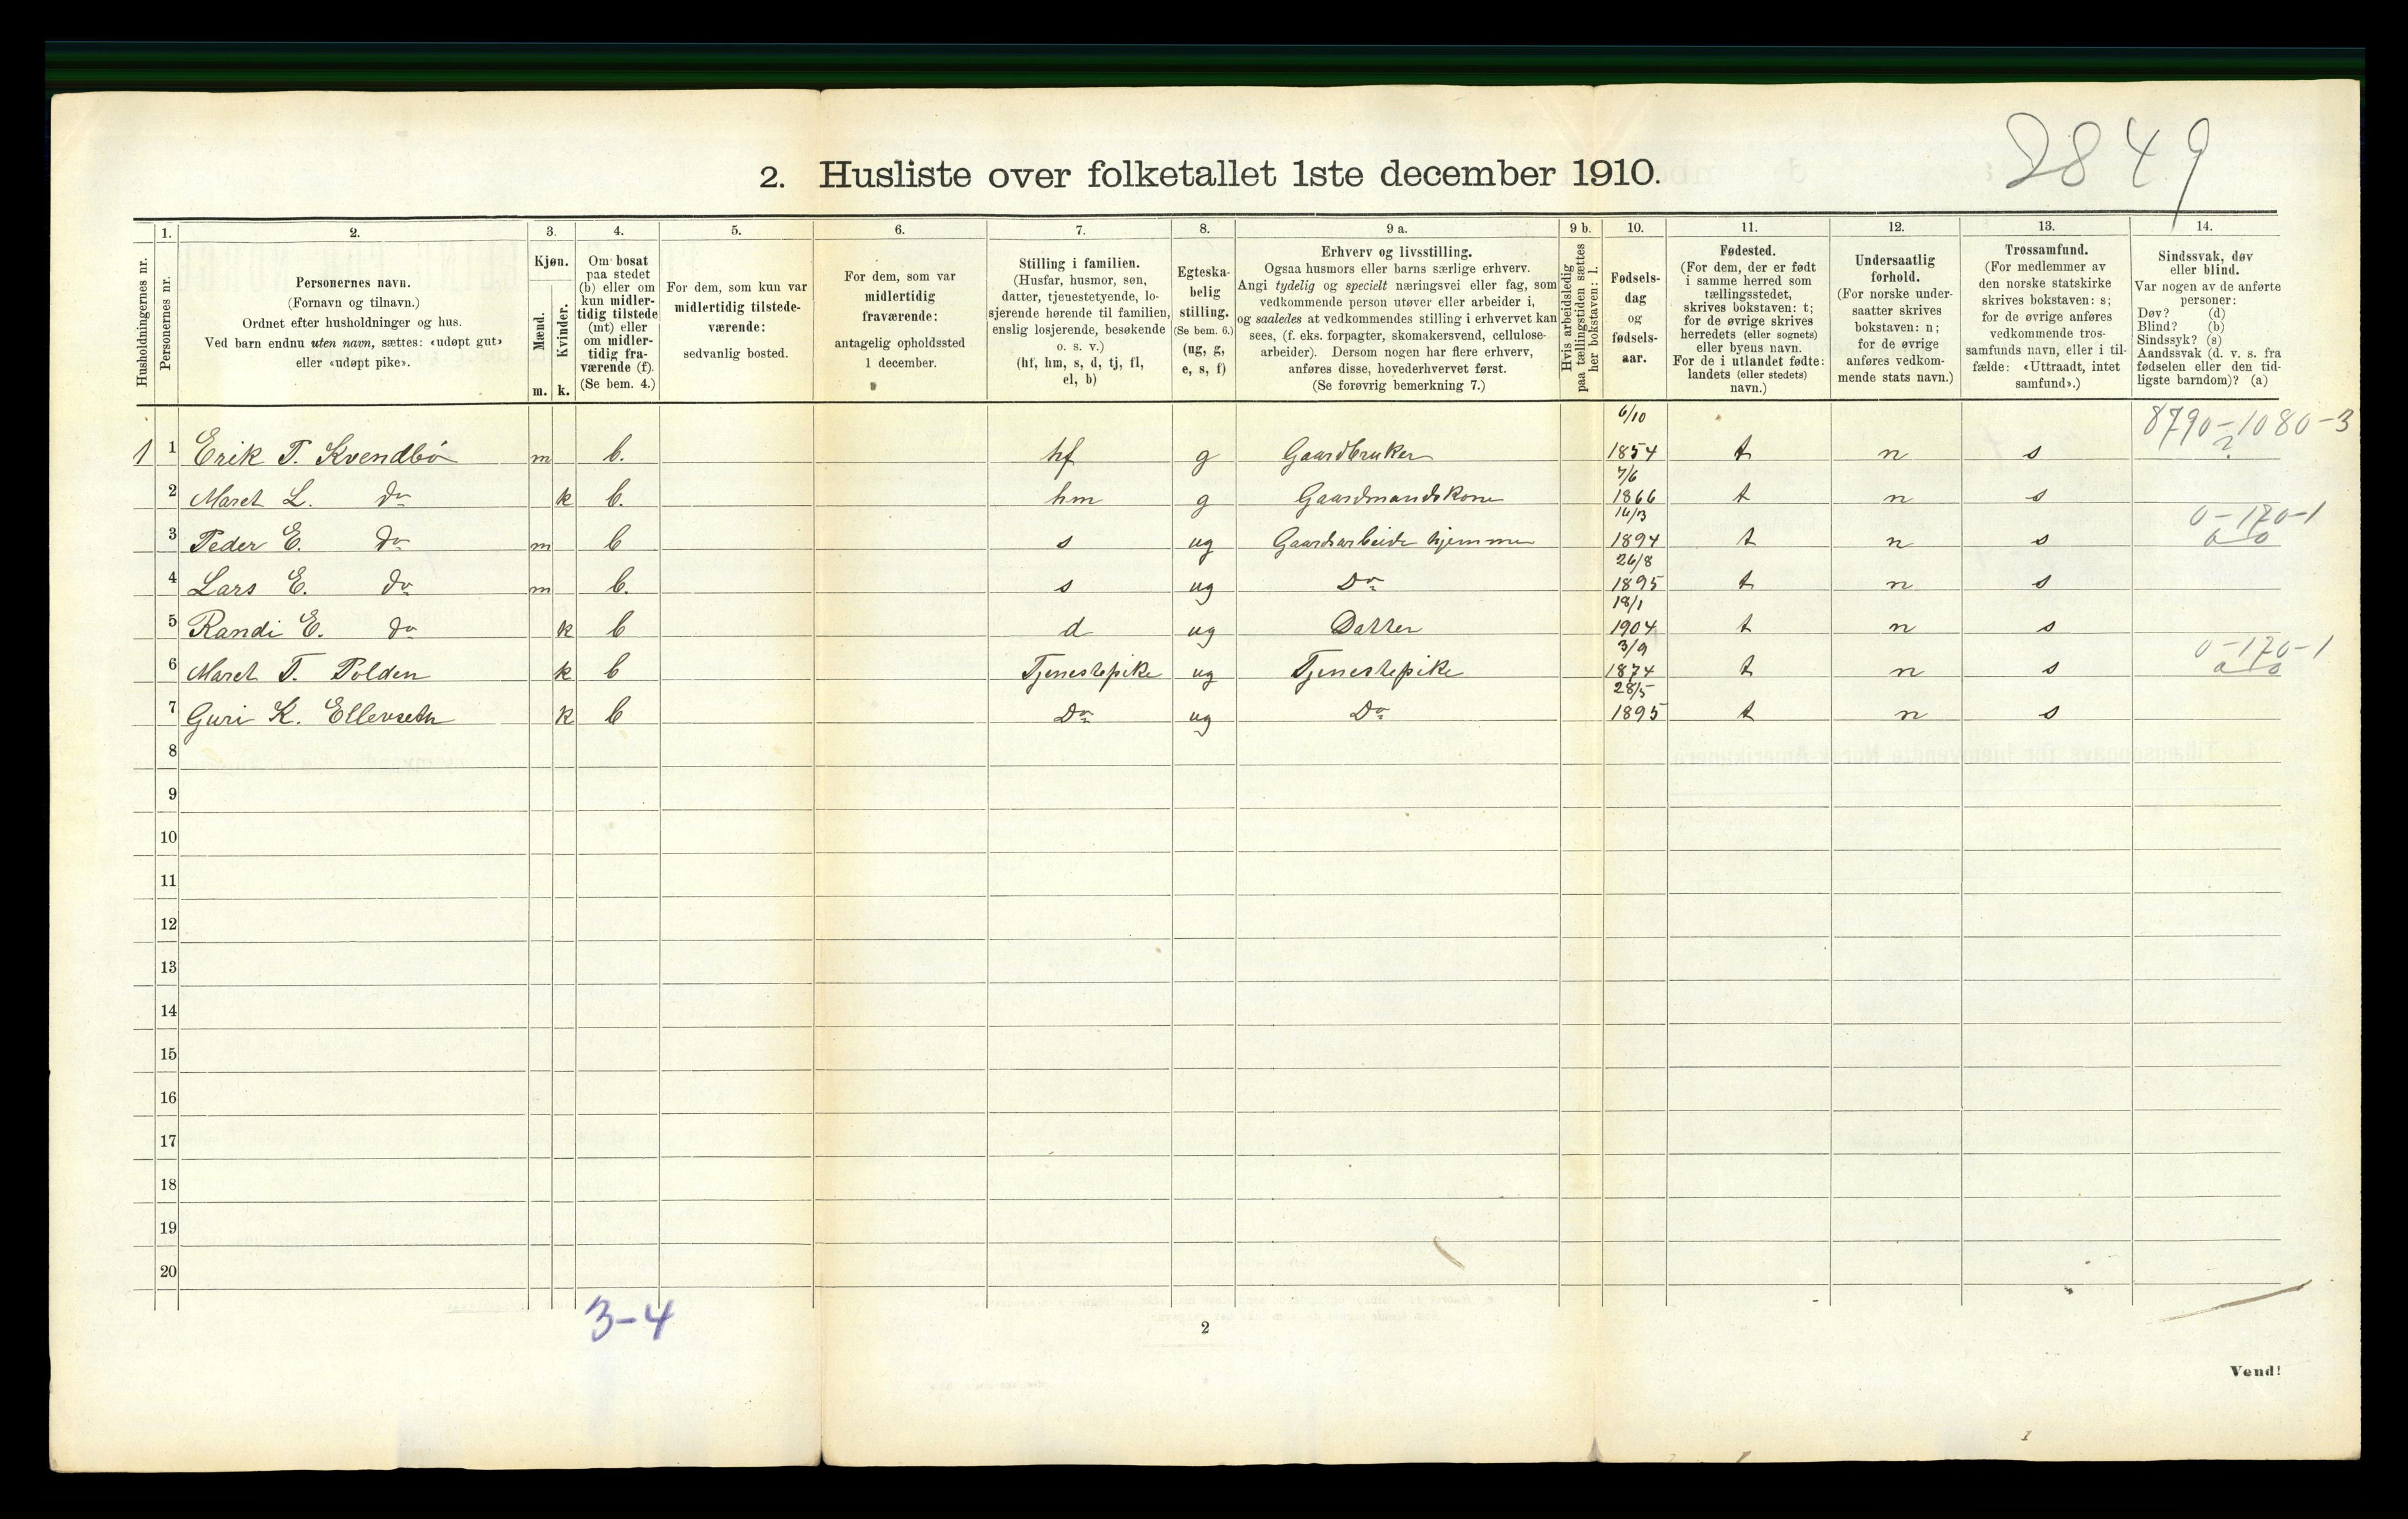 2849
2. Husliste over folketallet 1ste december 1910.
Husholdningernes nr.
1.
Personernes nr.
2.
Personernes navn.
(Fornavn og tilnavn.)
Ordnet efter husholdninger og hus.
Ved barn endnu uten navn, sættes: «udøpt gut»
eller «udøpt pike».
3.
Kjøn.
Mænd.
Kvinder.
m. k.
4.
Om bosat
paa stedet
(b) eller om
kun midler-
tidig tilstede
(mt) eller
om midler-
tidig fra-
værende (f).
(Se bem. 4.)
5.
For dem, som kun var
midlertidig tilstede-
værende:
sedvanlig bosted.
6.
For dem, som var
midlertidig
fraværende:
antagelig opholdssted
1 december.
7.
Stilling i familien.
(Husfar, husmor, søn,
datter, tjenestetyende, lo-
sjerende hørende til familien,
enslig losjerende, besøkende
o. s. v.)
(hf, hm, s, d, tj, fl,
el, b)
8.
Egteska-
belig
stilling.
(Se bem. 6.)
(ug, g,
e, s, f)
9 a.
Erhverv og livsstilling.
Ogsaa husmors eller barns særlige erhverv.
Angi tydelig og specielt næringsvei eller fag, som
vedkommende person utøver eller arbeider i,
og saaledes at vedkommendes stilling i erhvervet kan
sees, (f. eks. forpagter, skomakersvend, cellulose-
arbeider). Dersom nogen har flere erhverv,
anføres disse, hovederhvervet først.
(Se forøvrig bemerkning 7.)
9 b.
Hvis arbeidsledig
paa tællingstiden sættes
her bokstaven: l.
10.
Fødsels-
dag
og
fødsels-
aar.
11.
Fødested.
(For dem, der er født
i samme herred som
tællingsstedet,
skrives bokstaven: t;
for de øvrige skrives
herredets (eller sognets)
eller byens navn.
For de i utlandet fødte:
landets (eller stedets)
navn.)
12.
Undersaatlig
forhold.
(For norske under-
saatter skrives
bokstaven: n;
for de øvrige
anføres vedkom-
mende stats navn.)
13.
Trossamfund.
(For medlemmer av
den norske statskirke
skrives bokstaven: s;
for de øvrige anføres
vedkommende tros-
samfunds navn, eller i til-
fælde: «Uttraadt, intet
samfund».)
14.
Sindssvak, døv
eller blind.
Var nogen av de anførte
personer:
Døv? (d)
Blind? (b)
Sindssyk? (s)
Aandssvak (d. v. s. fra
fødselen eller den tid-
ligste barndom)? (a)
6/10 8790-1080-3
1 1 Erik T. Kvendbø m b. hf g Gaardbruker 1854 t n s ?
7/6
2 Maret L. do k b. hm g Gaardmandskone 1866 t n s
0-170-1
3 Peder E. do m b s ug Gaardsarbeide hjemme 1894 t n s
26/8
4 Lars E. do m b. s ug Do 1895 t n s
18/1
5 Randi E. do k b d ug Datter 1904 t n s
3/9 0-170-1
6 Maret T. Polden k b Tjenestepike ug Tjenestepike 1874 t n s
28/5
7 Guri K. k b Do ug Do 1895 t n s
8
9
10
11
12
13
14
15
16
17
18
19
20
3-4
2
Vend!